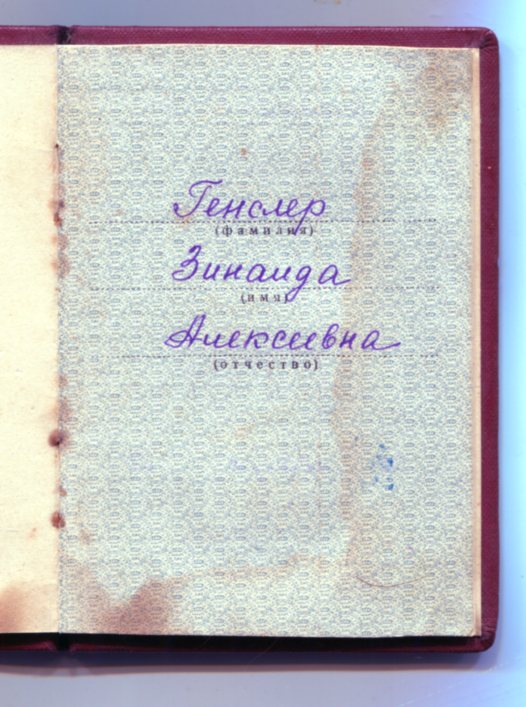 Генслер
(фамилия)
Зинаида
(имя)
Алексеевна
(отчество)